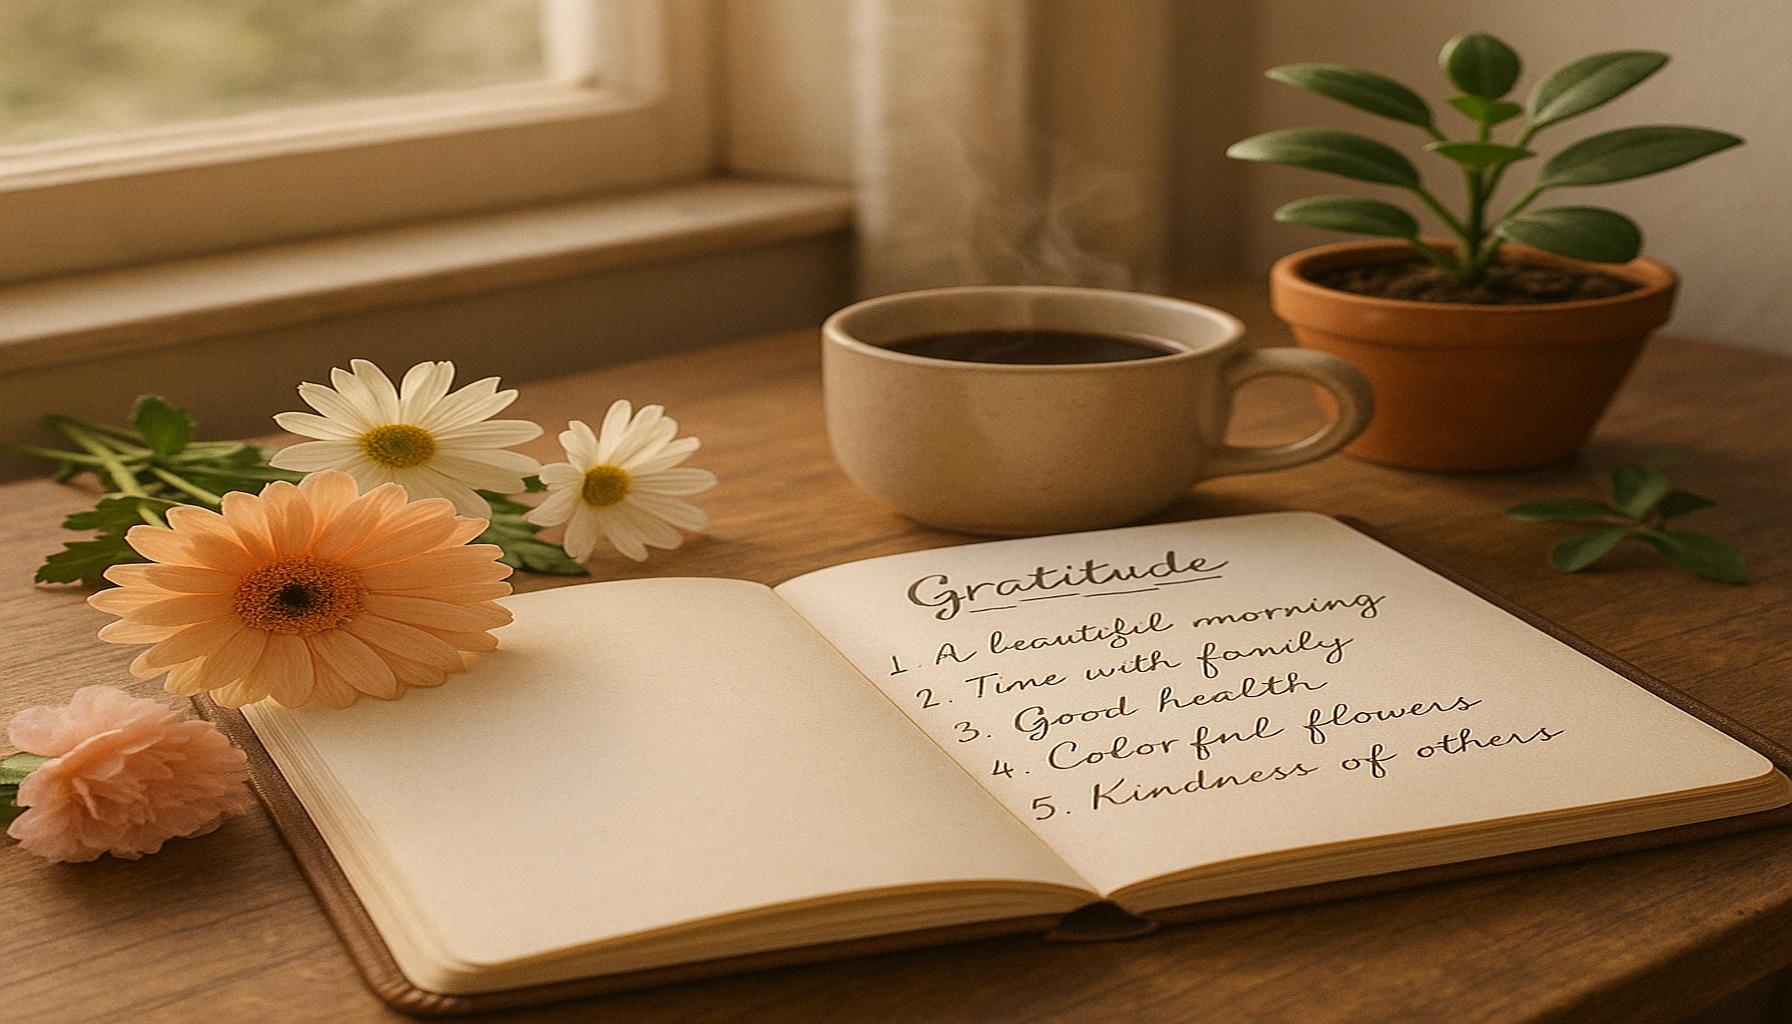 Gratitude
1. A beautiful morning
2. Time with family
3. Good health
4. Colorful flowers
5. Kindness of others